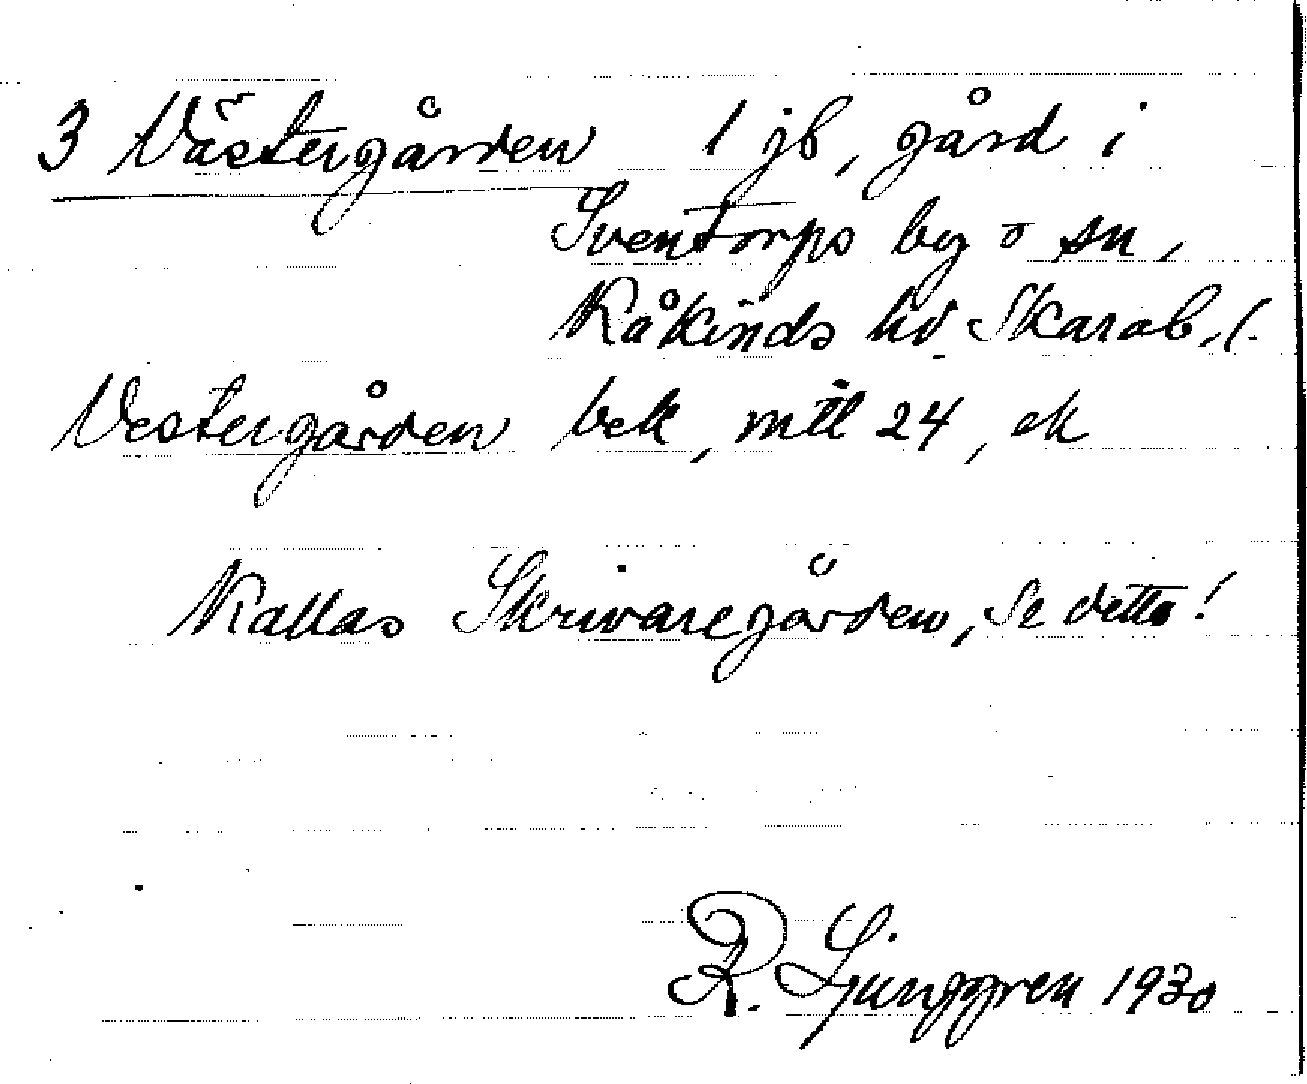 3 Västergården 1 jb, gård i
Sventorps by o sn,
Kåkinds hd Skarab. l.
Vestergården bek, mtl 24, ek
Kallas Skrivaregården, Se detta!
R. Ljunggren 1930